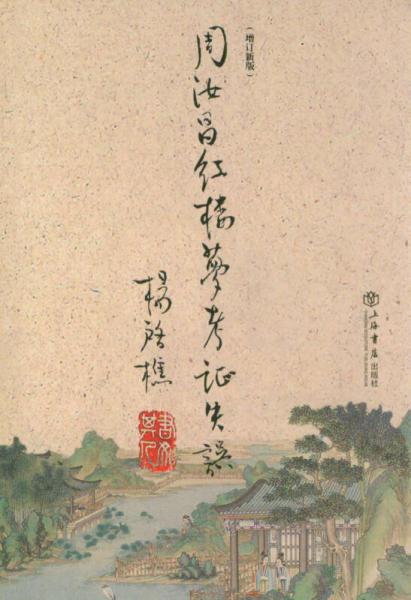 (增订新版)
周汝昌红楼梦考证失误
杨启樵
上海书店出版社